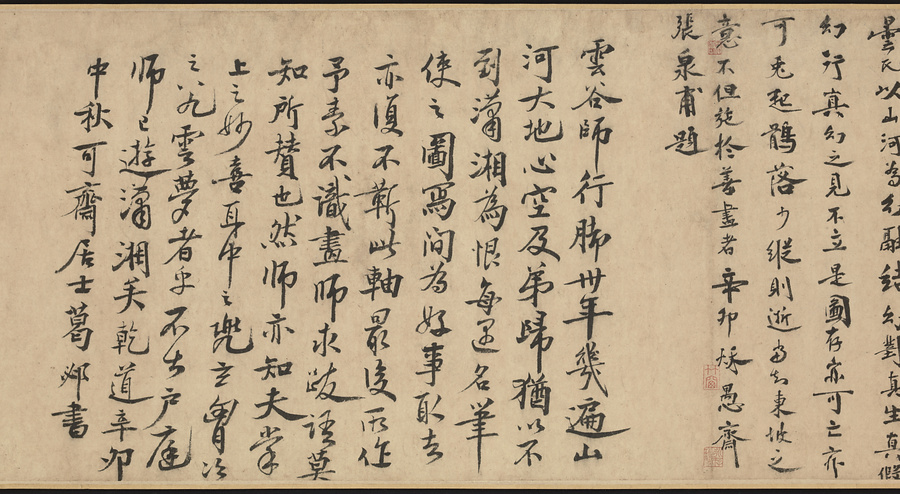 曇氏以山河為幻融結幻對真生真假
幻行真幻之見不立是圖存亦可亡亦
可兎起鶻落少縱則逝當知東坡之
意不但施於善畫者辛卯秋愚齋
張泉甫題
雲谷師行脚卅年幾遍山
河大地心空及第歸猶以不
到瀟湘為恨每遇名筆
使之圖寫間為好事取去
亦復不靳此軸最後所作
予素不識畫師求跋語莫
知所贊也然師亦知夫掌
上之妙喜身中之兜玄胷次
之八九雲夢者乎不出户庭
師已遊瀟湘矣乾道辛卯
中秋可齋居士葛郯書